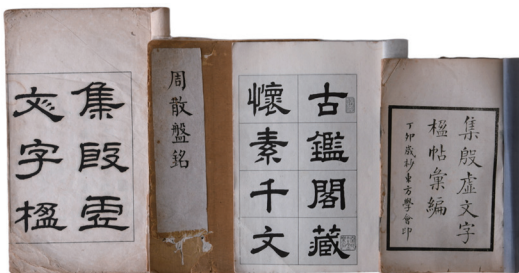 集殷虛
文字楹
周散盤銘
古鑑閣藏
懷素千文
集殷虛文字
楹帖彙編
丁卯歲杪東方學會印